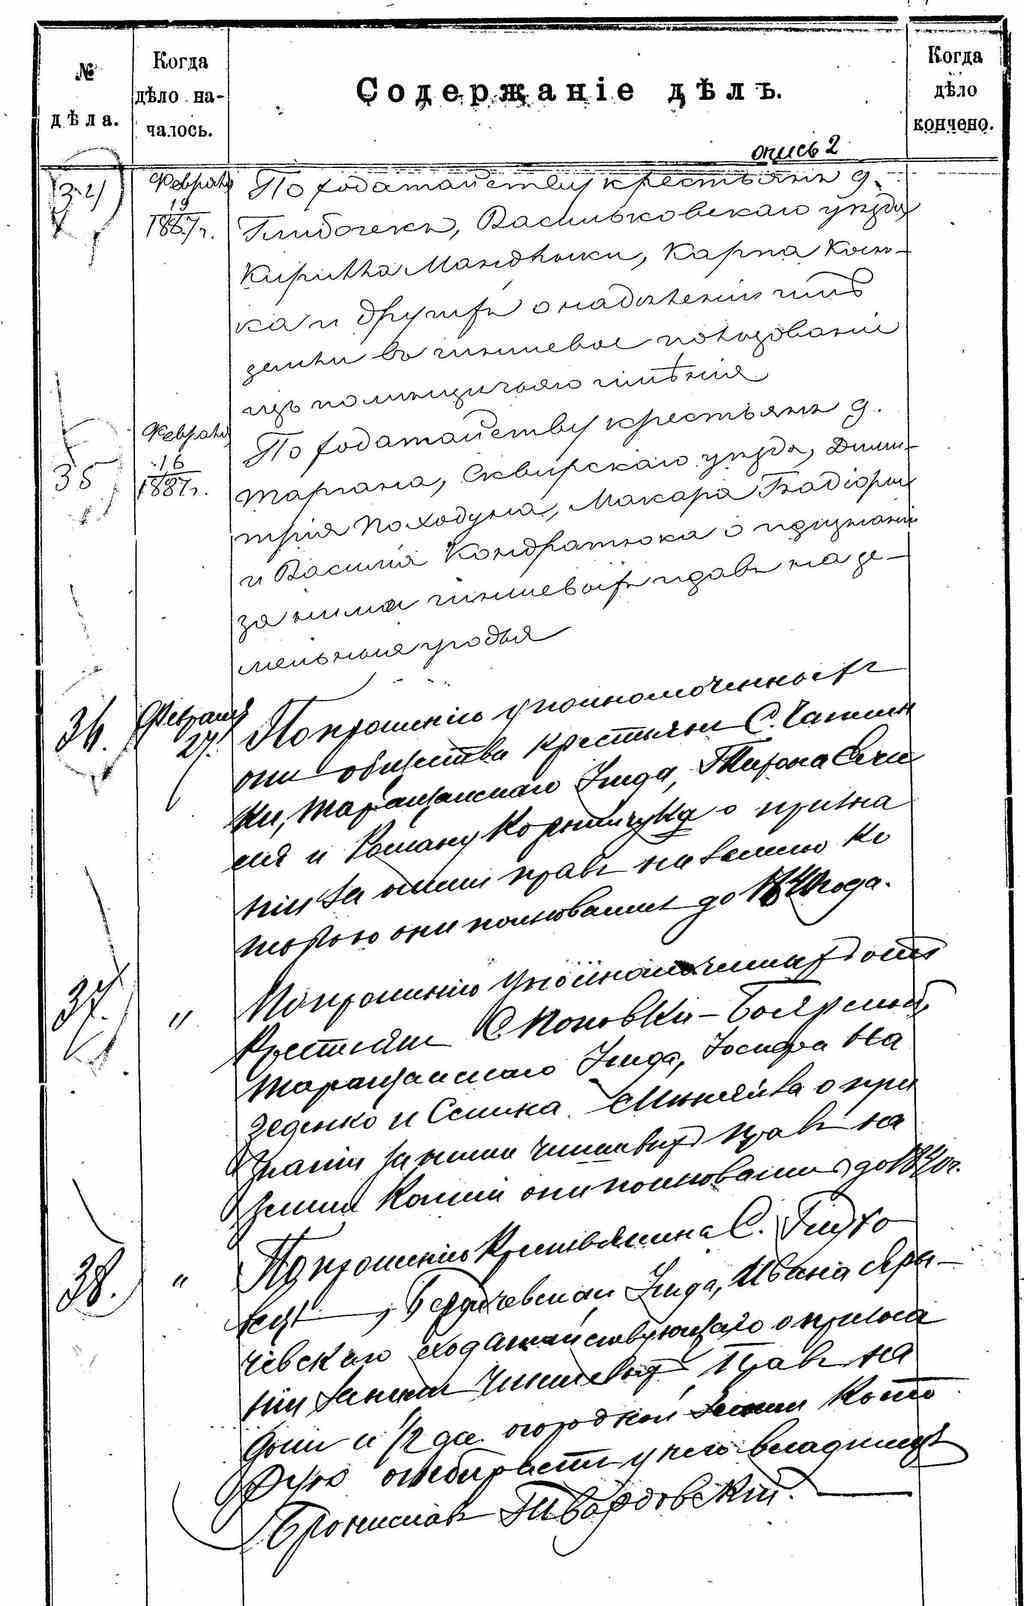 № дѣла.
Когда дѣло началось.
Содержаніе дѣлъ.
Когда дѣло кончено.
опись 2
34
Февраля 19 1887 г.
По ходатайству крестьянъ д.
Глибочекъ, Васильковскаго уѣзда
Кирилла Мандзюки, Карпа Коло-
ка и другихъ о надѣленіи ихъ
земли въ чиншевое пользованіе
изъ помѣщичьяго имѣнія
35
Февраля 16 1887 г.
По ходатайству крестьянъ д.
Таргана, Сквирскаго уѣзда, Дими-
трія Походуна, Макара
и Василія Кондратюка о признаніи
за ними чиншевыхъ правъ на зе-
мельныя угодья
36.
Февраля 27.
По прошенію уполномоченныхъ
отъ общества крестьянъ С.
ки, Таращанскаго Уѣзда,
и Романа Корнійчука о призна
ніи за ними правъ на землю ко
торою они пользовались до 1840 года.
37.
"
По прошенію Уполномоченныхъ отъ
Крестьянъ С. Поповки-Боярской,
Таращанскаго Уѣзда, Іосифа На
зеденко и Семена о при
знаніи за ними Чиншевыхъ правъ на
земли коими они пользовались до 1840 г.
38.
"
По прошенію Крестьянина С. Глухо
вецъ, Бердичевскаго Уѣзда, Ивана Яры-
чевскаго ходатайствующаго о призна
ніи за нимъ Чиншевыхъ Правъ на
домъ и 1/2 де. огородной земли кото
рую отбираетъ у него владѣлецъ
Брониславъ Твардовскій.